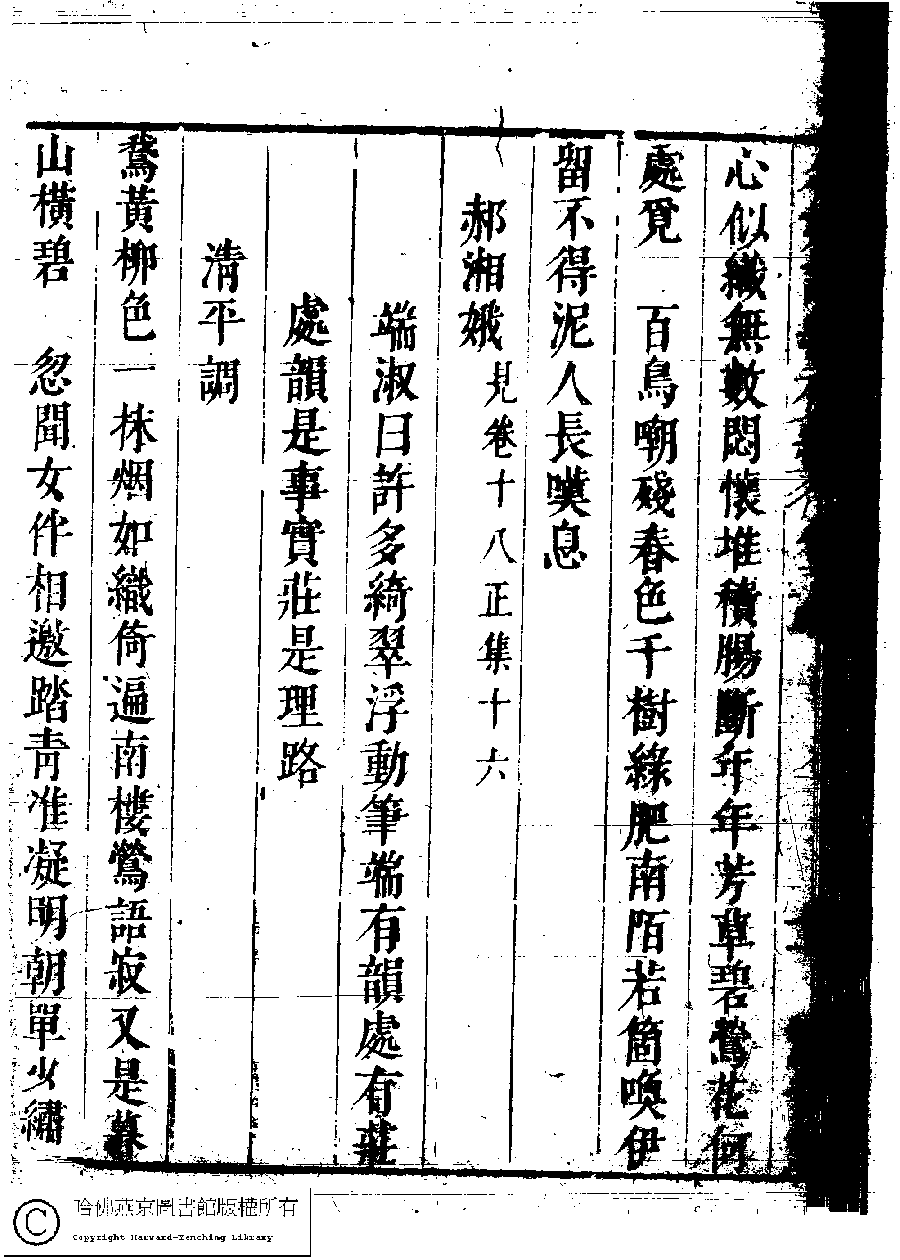 心似織無數悶懷堆積腸斷年年芳草碧鶯花何
處覓　百鳥嘲殘春色千樹綠肥南陌若箇喚伊
留不得泥人長嘆息
郝湘娥見卷十八正集十六
端淑曰許多綺翠浮動筆端有韻處有莊
處韻是事實莊是理路
清平調
鵞黃柳色一抹烟如織倚遍南樓鶯語寂又是暮
山橫碧　忽聞女伴相邀踏青准凝明朝單少繡
哈佛燕京圖書館版權所有
Copyright Harvard-Yenching Library